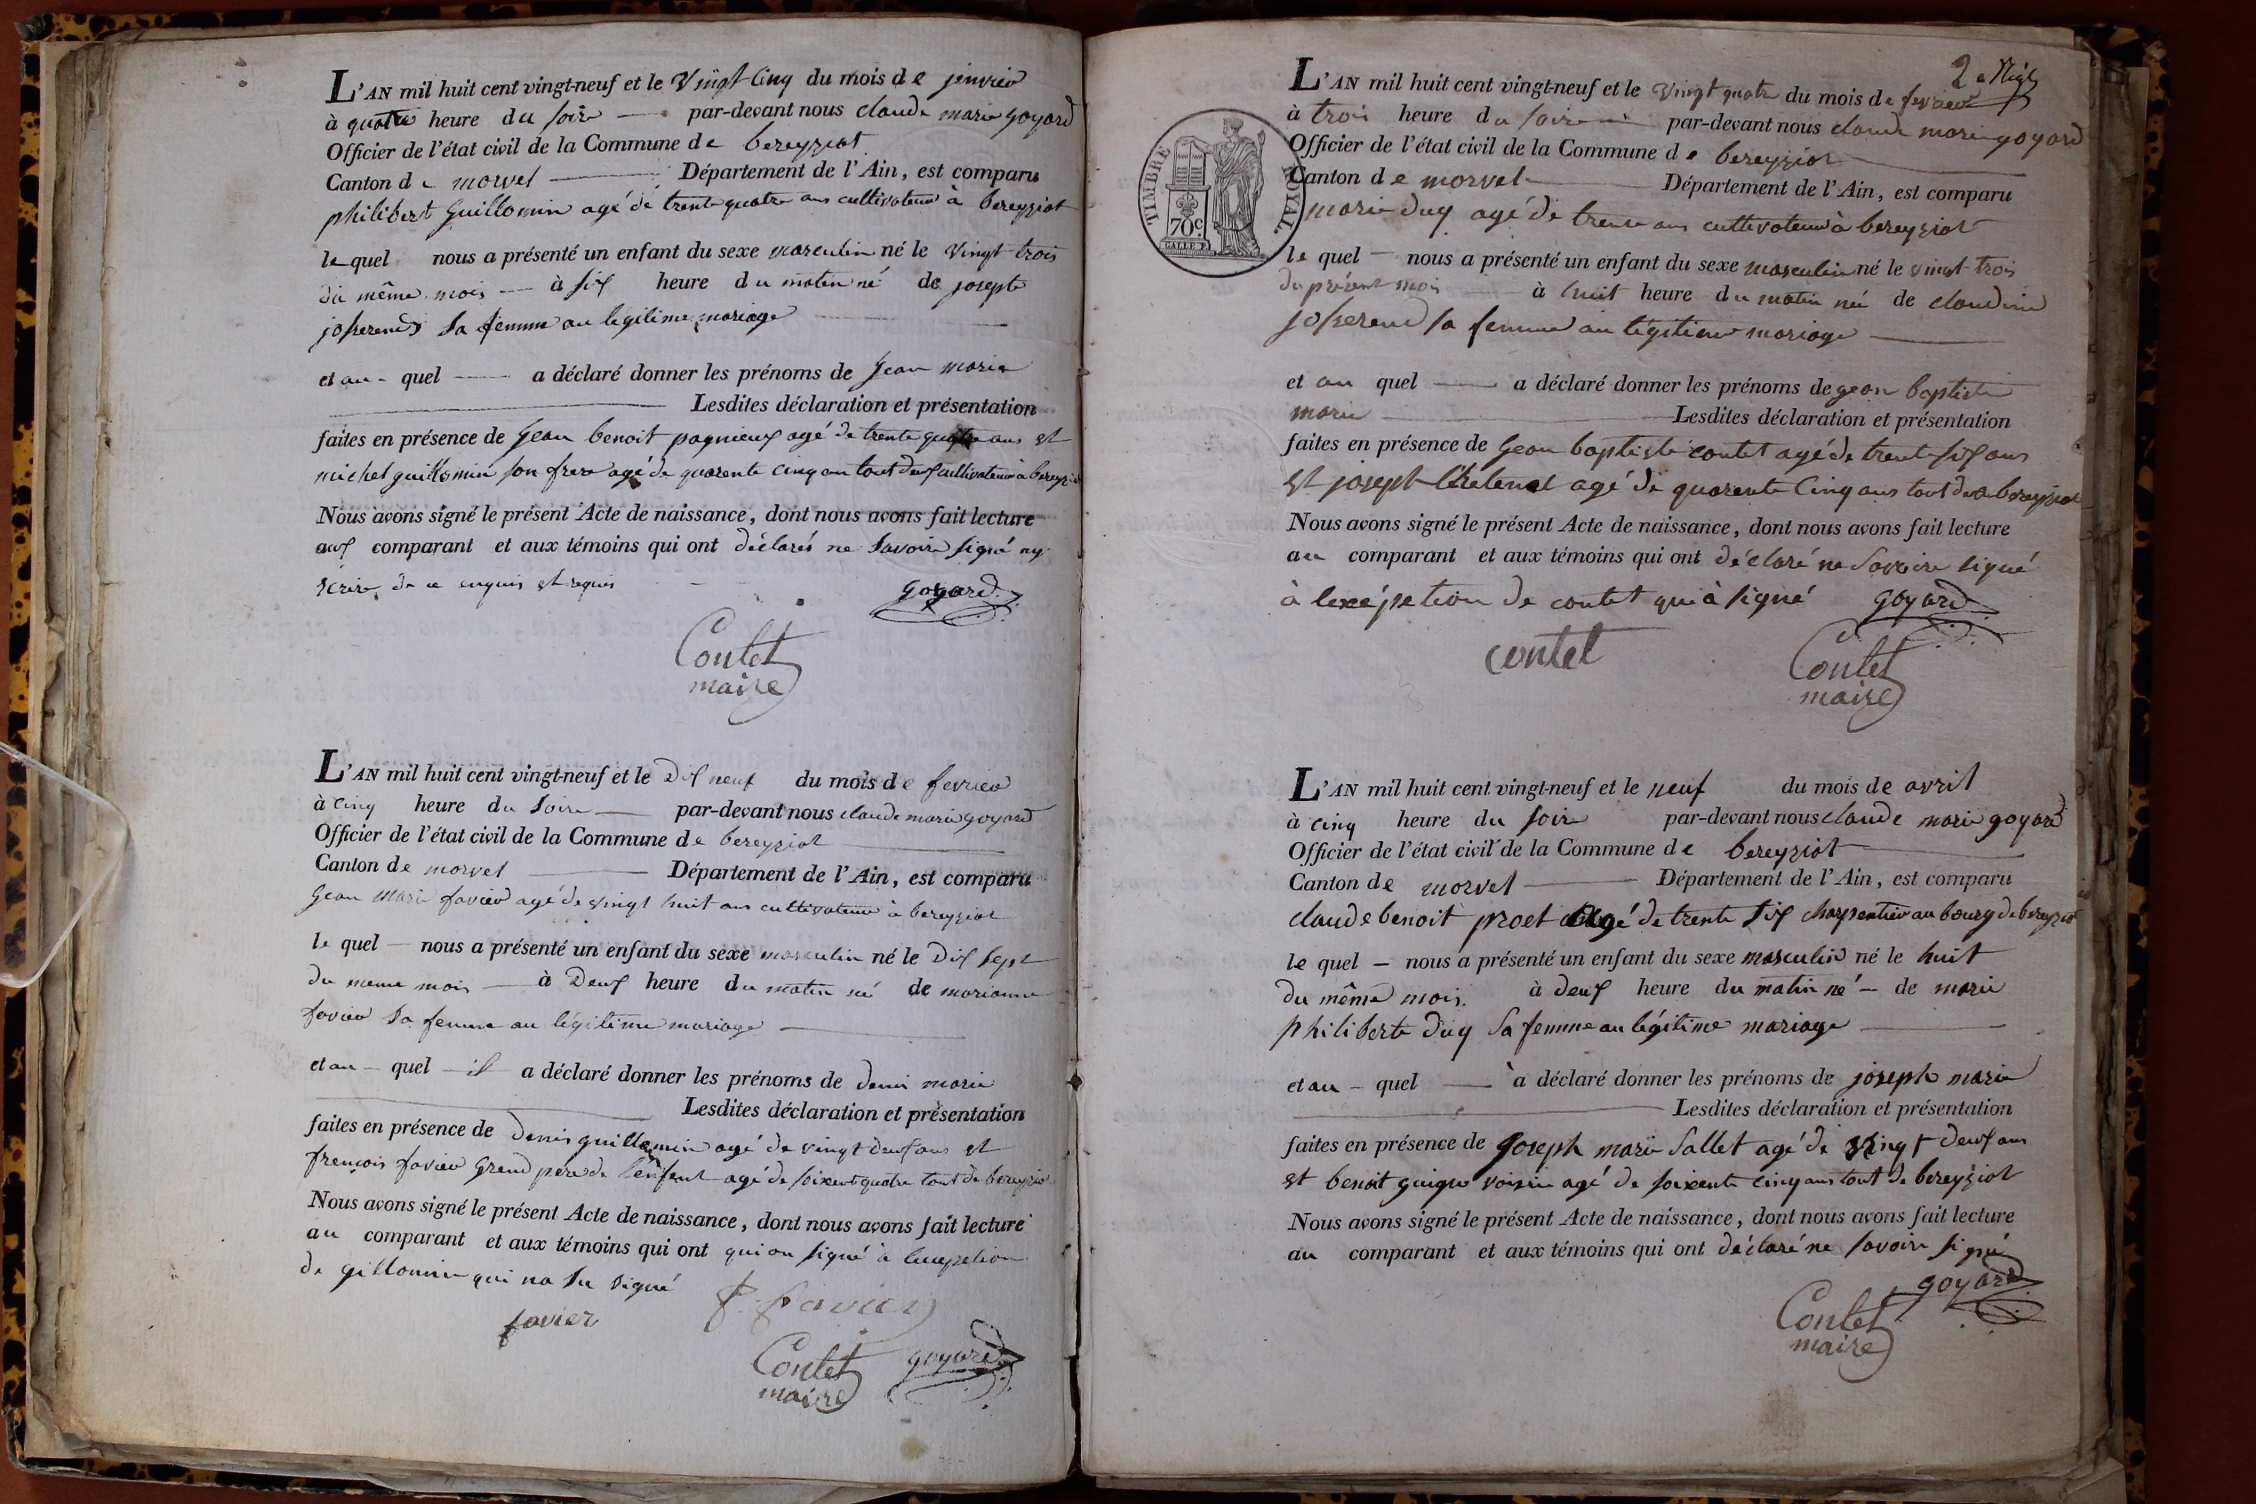 L'AN mil huit cent vingt-neuf et le vingt Cinq du mois de jenvier
à quatre heure du soire par-devant nous claude marie goyard
Officier de l'état civil de la Commune de bereyziat
Canton de morvel Département de l'Ain, est comparu
philibert guillomin agé de trente quatre ans cultivateur à bereyziat
le quel nous a présenté un enfant du sexe masculin né le vingt trois
du même mois à six heure du matin né de josepte
josserend sa femme au legitime mariage
et au quel a déclaré donner les prénoms de jean marie
Lesdites déclaration et présentation
faites en présence de jean benoit pagnieux agé de trente quatre ans et
michel guillomin son frere agé de quarente cinq an tout deux cultivateur à bereyziat
Nous avons signé le présent Acte de naissance, dont nous avons fait lecture
aux comparant et aux témoins qui ont déclarés ne savoire signé ny
screire de ce enquis et requis
goyard
Contet
maire
L'AN mil huit cent vingt-neuf et le dix neuf du mois de fevrier
à cinq heure du soire par-devant nous claude marie goyard
Officier de l'état civil de la Commune de bereyziat
Canton de morvel Département de l'Ain, est comparu
jean marie favier agé de vingt huit ans cultivateur à bereyziat
le quel nous a présenté un enfant du sexe masculin né le dix sept
du meme mois à deux heure du matin né de marianne
favier sa femme au légitime mariage
et au quel il a déclaré donner les prénoms de denis marie
Lesdites déclaration et présentation
faites en présence de denis guillomin agé de vingt deux ans et
françois favier grend pere de l'enfent agé de soixent quatre tout de bereyziat
Nous avons signé le présent Acte de naissance, dont nous avons fait lecture
au comparant et aux témoins qui ont qui on signé à lexception
de gillomin qui na su signé
favier
f favier
Contet
maire
goyard
2e
L'AN mil huit cent vingt-neuf et le vingt quatre du mois de fevrier
à trois heure du soire par-devant nous claude marie goyard
Officier de l'état civil de la Commune de bereyziat
Canton de morvel Département de l'Ain, est comparu
TIMBRE ROYAL
70c.
marie duy agé de trente ans cultivateur à bereyziat
le quel nous a présenté un enfant du sexe masculin né le vingt trois
du présent mois à huit heure du matin né de claudine
josserend sa femme au légitime mariage
et au quel a déclaré donner les prénoms de jean baptiste
marie Lesdites déclaration et présentation
faites en présence de jean baptiste contet agé de trente six ans
et joseph Chatenet agé de quarente Cinq ans tout de bereyziat
Nous avons signé le présent Acte de naissance, dont nous avons fait lecture
au comparant et aux témoins qui ont déclaré ne savoire signé
à lexcépetion de contet qui à signé goyard
contet
Contet
maire
L'AN mil huit cent vingt-neuf et le neuf du mois de avril
à cinq heure du soire par-devant nous claude marie goyard
Officier de l'état civil de la Commune de bereyziat
Canton de morvel Département de l'Ain, est comparu
claude benoit proet agé de trente six charpentier au bourg de bereyziat
le quel nous a présenté un enfant du sexe masculin né le huit
du même mois. à deux heure du matin né de marie
philiberte duy sa femme au légitime mariage
et au quel à déclaré donner les prénoms de joseph marie
Lesdites déclaration et présentation
faites en présence de joseph marie Sallet agé de vingt deux ans
et benoit guigue voisin agé de soixente cinq ans tout de bereyziat
Nous avons signé le présent Acte de naissance, dont nous avons fait lecture
au comparant et aux témoins qui ont déclaré ne savoire signé
goyard
Contet
maire